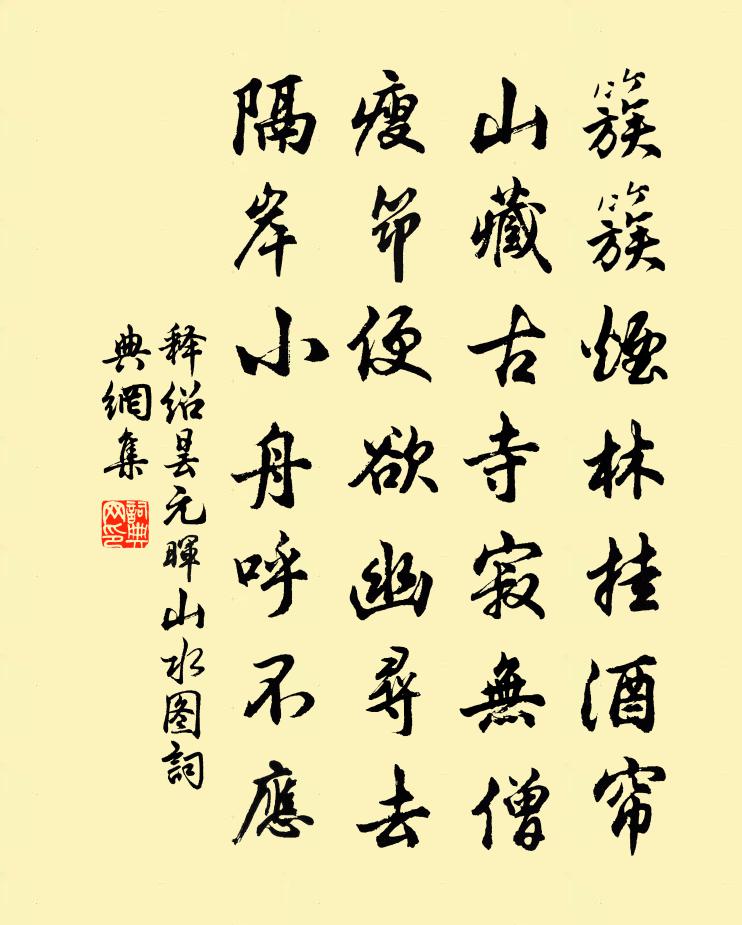 簇簇煙林挂酒帘
山藏古寺寂無僧
瘦笻便欲幽尋去
隔岸小舟呼不應
释绍昙元暉山水图詞
典網集
詞典网印